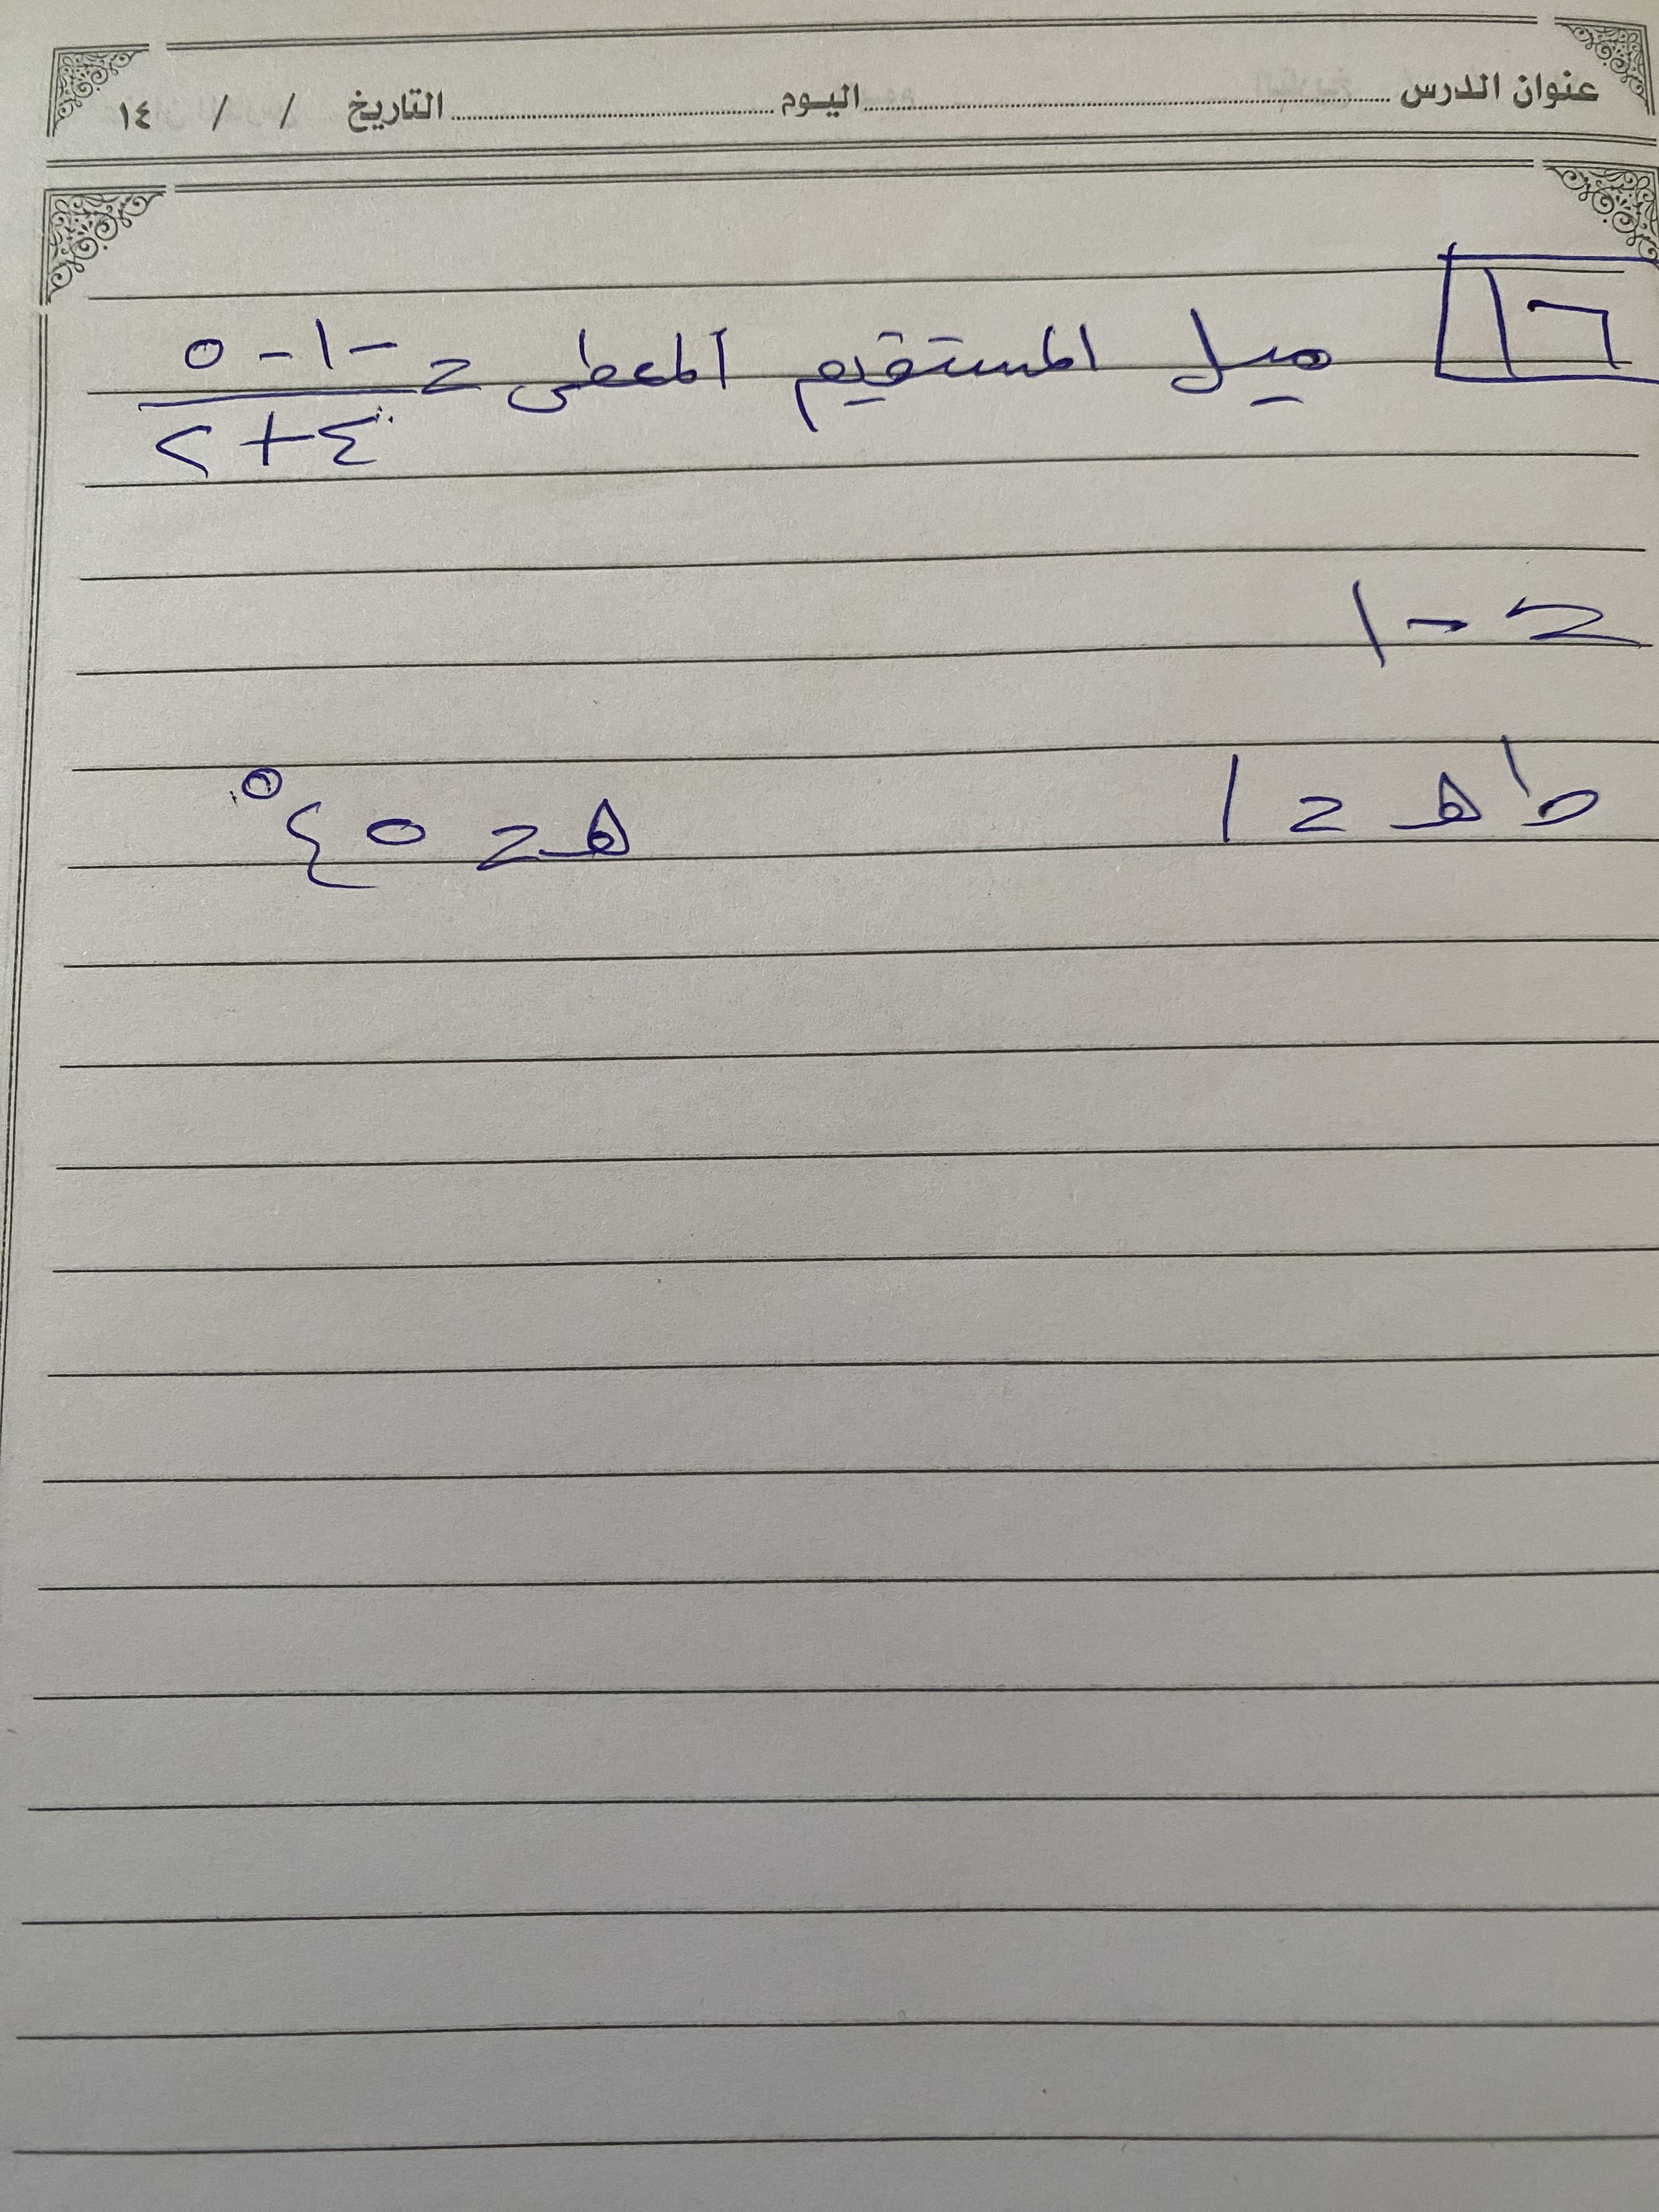 عنوان الدرس ........ اليوم ........ التاريخ / / ١٤
١٦ ميل المستقيم المعطى = (-١-٥)/(٤+٢)
= -١
ظا هـ = ١ هـ = ٤٥°